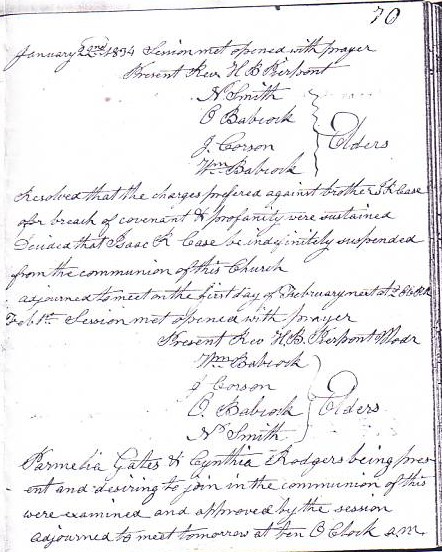 70
January 22nd 1834 Session met opened with prayer
Present Rev H B Pierpont
N Smith
O Babcock
J. Corson
Wm Babcock
Elders
Resolved that the charges prefered against brother I R Case
for breach of covenant & profanity were sustained
Decided that Isaac R Case be indefinitely suspended
from the communion of this Church
adjourned to meet on the first day of February next at 2 O Clk
Feb 1st Session met opened with prayer
Present Rev H. B. Pierpont Modr
Wm Babcock
J Corson
O. Babcock
N Smith
Elders
Parmelia Gates & Cynthia Rodgers being pres-
ent and desiring to join in the communion of this
were examined and approved by the session
adjourned to meet tomorrow at ten O Clock a.m.